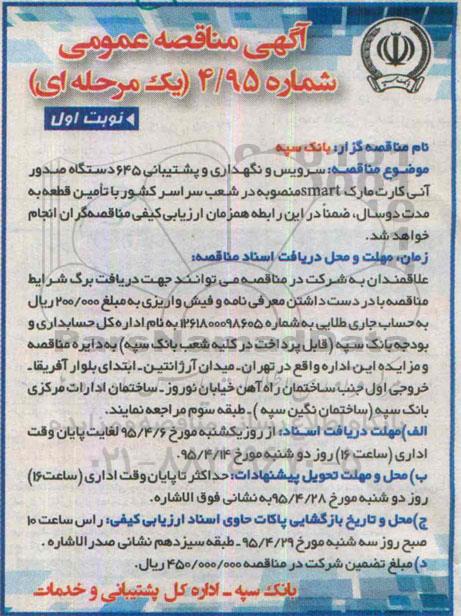 آگهی مناقصه عمومی
شماره ۴/۹۵ (یک مرحله ای)
نوبت اول
نام مناقصه گزار: بانک سپه
موضوع مناقصه: سرویس و نگهداری و پشتیبانی ۶۴۵ دستگاه صدور
آنی کارت مارک smart منصوبه در شعب سراسر کشور با تأمین قطعه به
مدت دوسال، ضمناً در این رابطه همزمان ارزیابی کیفی مناقصه‌گران انجام
خواهد شد.
زمان، مهلت و محل دریافت اسناد مناقصه:
علاقمندان به شرکت در مناقصه می توانند جهت دریافت برگ شرایط
مناقصه با در دست داشتن معرفی نامه و فیش واریزی به مبلغ ۲۰۰/۰۰۰ ریال
به حساب جاری طلایی به شماره ۱۲۶۱۸۰۰۰۹۸۶۰۵ به نام اداره کل حسابداری و
بودجه بانک سپه (قابل پرداخت در کلیه شعب بانک سپه) به دایره مناقصه
و مزایده این اداره واقع در تهران - میدان آرژانتین - ابتدای بلوار آفریقا -
خروجی اول جنب ساختمان راه آهن خیابان نوروز - ساختمان ادارات مرکزی
بانک سپه (ساختمان نگین سپه) - طبقه سوم مراجعه نمایند.
الف) مهلت دریافت اسناد: از روز یکشنبه مورخ ۹۵/۴/۶ لغایت پایان وقت
اداری (ساعت ۱۶) روز دو شنبه مورخ ۹۵/۴/۱۴.
ب) محل و مهلت تحویل پیشنهادات: حداکثر تا پایان وقت اداری (ساعت ۱۶)
روز دو شنبه مورخ ۹۵/۴/۲۸ به نشانی فوق الاشاره.
ج) محل و تاریخ بازگشایی پاکات حاوی اسناد ارزیابی کیفی: راس ساعت ۱۰
صبح روز سه شنبه مورخ ۹۵/۴/۲۹ - طبقه سیزدهم نشانی صدر الاشاره .
د) مبلغ تضمین شرکت در مناقصه ۴۵۰/۰۰۰/۰۰۰ ریال.
بانک سپه - اداره کل پشتیبانی و خدمات